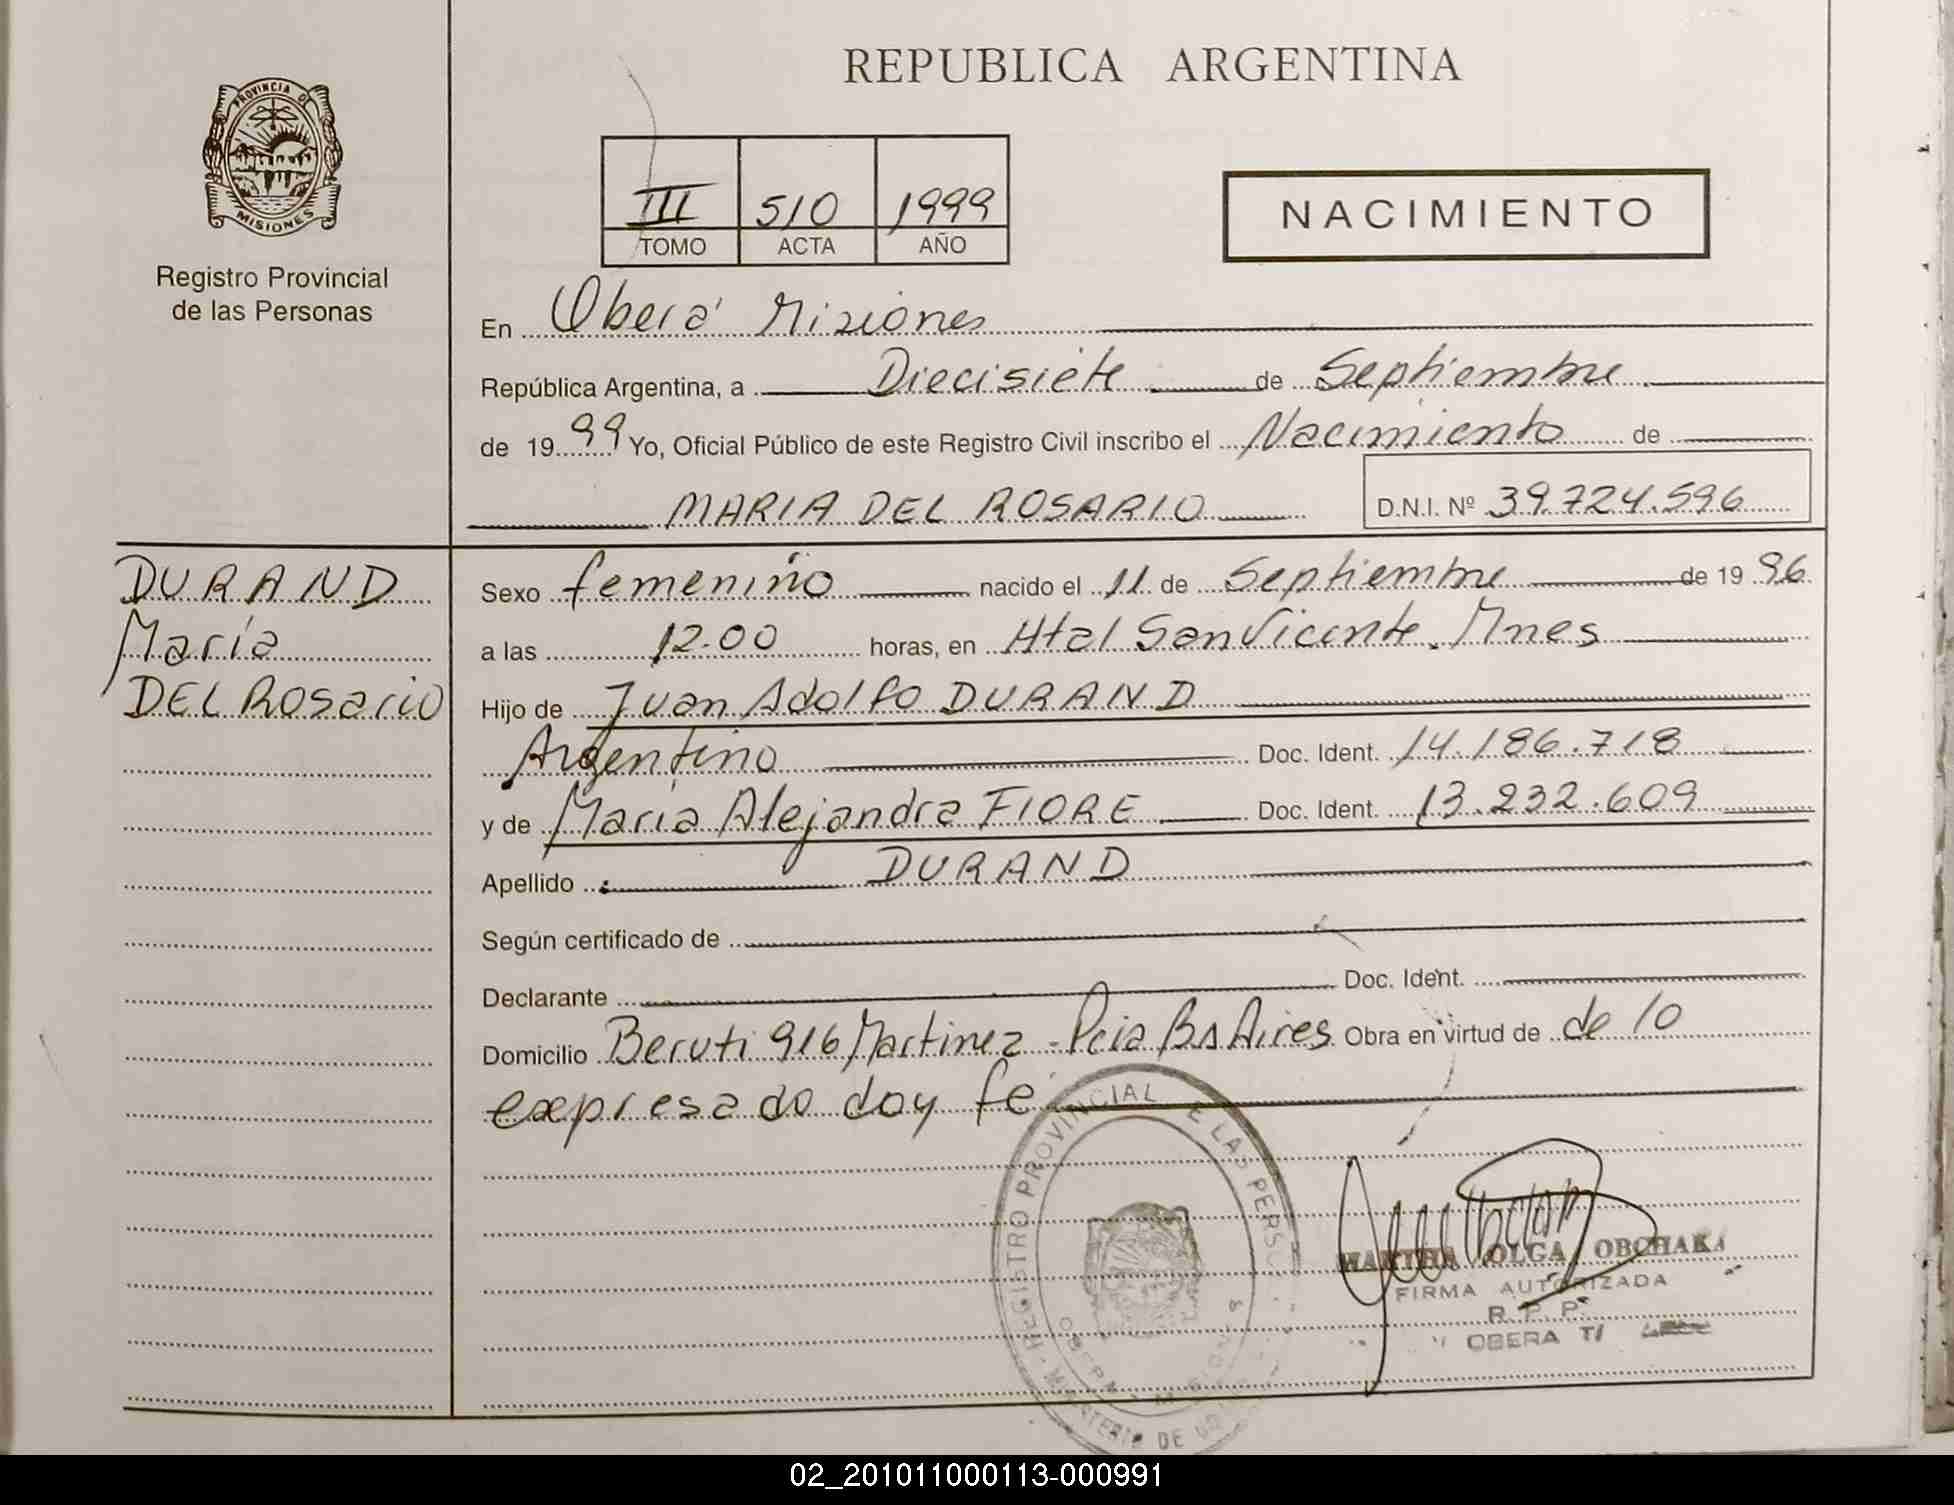 REPUBLICA ARGENTINA
PROVINCIA DE
MISIONES
Registro Provincial
de las Personas
III 510 1999
TOMO ACTA AÑO
NACIMIENTO
En Oberá Misiones
República Argentina, a Diecisiete de Septiembre
de 1999 Yo, Oficial Público de este Registro Civil inscribo el Nacimiento de
MARIA DEL ROSARIO D.N.I. Nº 39.724.596
DURAND
María
DEL Rosario
Sexo femenino nacido el 11 de Septiembre de 1996
a las 12.00 horas, en Htal San Vicente. Mnes
Hijo de Juan Adolfo DURAND
Argentino Doc. Ident. 14.186.718
y de María Alejandra FIORE Doc. Ident. 13.232.609
Apellido : DURAND
Según certificado de
Declarante Doc. Ident.
Domicilio Beruti 916 Martinez - Pcia Bs Aires Obra en virtud de de lo
expresado doy fe
REGISTRO PROVINCIAL E LAS PERS
MARTHA OLGA OBCHAKA
FIRMA AUTORIZADA
R. P. P.
OBERA
02_201011000113-000991